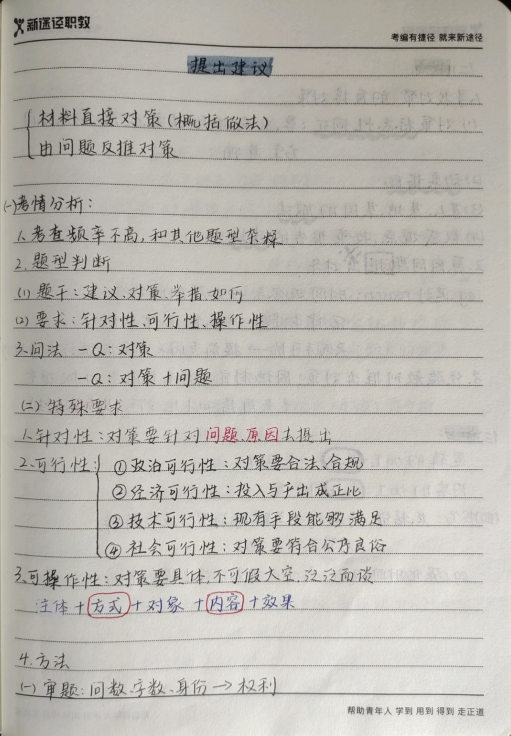 新途径职教
考编有捷径 就来新途径
提出建议
材料直接对策(概括做法)
由问题反推对策
(一)考情分析:
1.考查频率不高,和其他题型杂糅
2.题型判断
(1)题干:建议、对策、举措、如何
(2)要求:针对性、可行性、操作性
3.问法 一Q:对策
一Q:对策+问题
(二)特殊要求
1.针对性:对策要针对问题、原因去提出
2.可行性: ①政治可行性:对策要合法、合规
②经济可行性:投入与产出成正比
③技术可行性:现有手段能够满足
④社会可行性:对策要符合公序良俗
3.可操作性:对策要具体,不可假大空,泛泛而谈
主体+方式+对象+内容+效果
4.方法
(一)审题:问数、字数、身份→权利
帮助青年人 学到 用到 得到 走正道